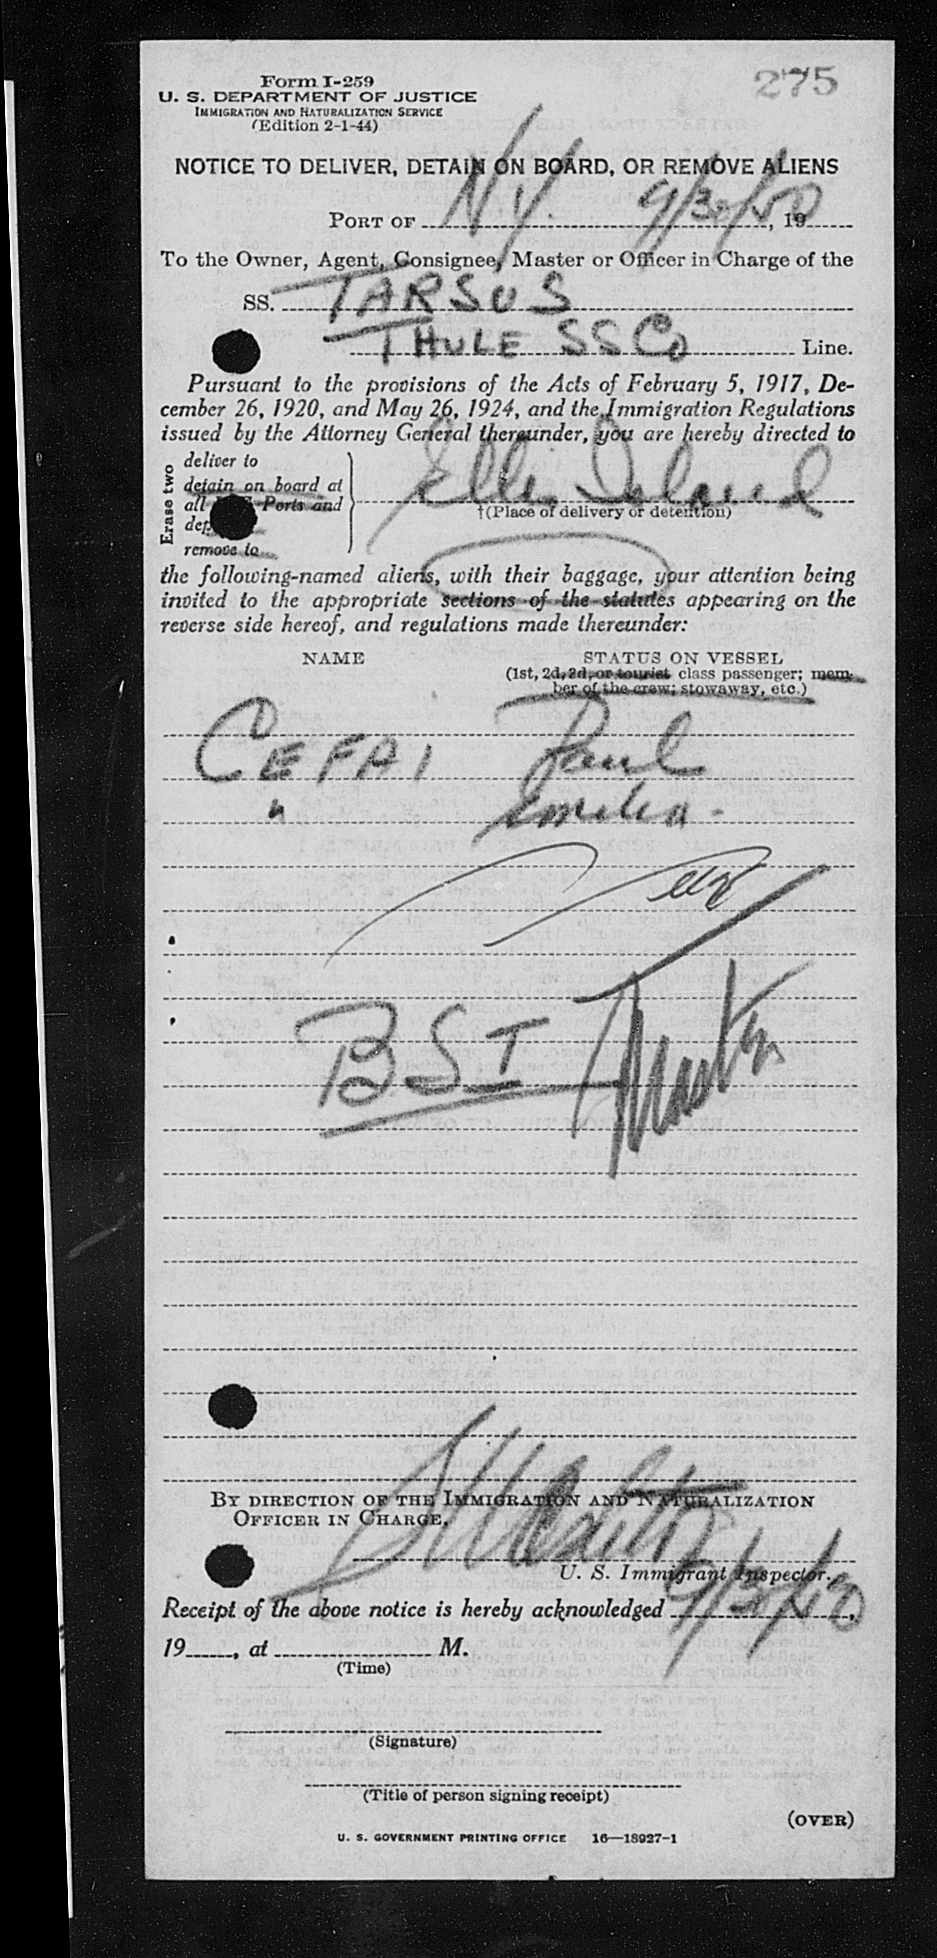 275
Form I-259
U. S. DEPARTMENT OF JUSTICE
IMMIGRATION AND NATURALIZATION SERVICE
(Edition 2-1-44)
NOTICE TO DELIVER, DETAIN ON BOARD, OR REMOVE ALIENS
PORT OF N Y. 9/30/50, 19
To the Owner, Agent, Consignee, Master or Officer in Charge of the
SS. TARSUS
THULE SS Co Line.
Pursuant to the provisions of the Acts of February 5, 1917, De-
cember 26, 1920, and May 26, 1924, and the Immigration Regulations
issued by the Attorney General thereunder, you are hereby directed to
Erase two
deliver to
detain on board at
all U. S. Ports and
remove to
Ellis Island
†(Place of delivery or detention)
the following-named aliens, with their baggage, your attention being
invited to the appropriate sections of the statutes appearing on the
reverse side hereof, and regulations made thereunder:
NAME STATUS ON VESSEL
(1st, 2d, 3d, or tourist class passenger; mem-
ber of the crew; stowaway, etc.)
CEFAI Paul
" Emelia -
BSI
By direction of the Immigration and Naturalization
Officer in Charge.
U. S. Immigrant Inspector.
Receipt of the above notice is hereby acknowledged 9/30/50,
19, at M.
(Time)
(Signature)
(Title of person signing receipt)
(OVER)
U. S. GOVERNMENT PRINTING OFFICE 16—18927-1